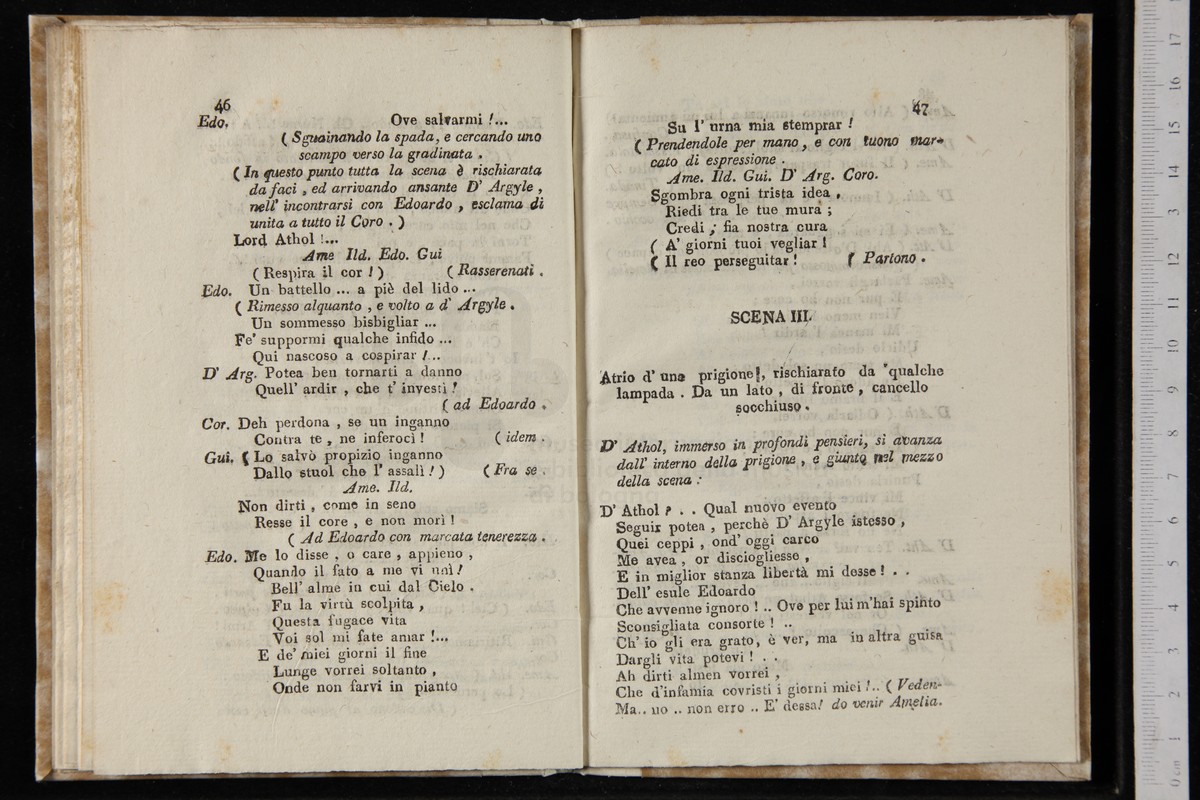 46
Edo. Ove salvarmi !...
( Sguainando la spada, e cercando uno
scampo verso la gradinata .
( In questo punto tutta la scena è rischiarata
da faci , ed arrivando ansante D' Argyle ,
nell' incontrarsi con Edoardo , esclama di
unita a tutto il Coro . )
Lord Athol !...
Ame Ild. Edo. Gui
( Respira il cor ! ) ( Rasserenati .
Edo. Un battello ... a piè del lido ...
( Rimesso alquanto , e volto a d' Argyle .
Un sommesso bisbigliar ...
Fe' suppormi qualche infido ...
Qui nascoso a cospirar !...
D' Arg. Potea ben tornarti a danno
Quell' ardir , che t' investì !
( ad Edoardo .
Cor. Deh perdona , se un inganno
Contra te , ne inferocì ! ( idem .
Gui. ( Lo salvò propizio inganno
Dallo stuol che l' assalì ! ) ( Fra se .
Ame. Ild.
Non dirti , come in seno
Resse il core , e non morì !
( Ad Edoardo con marcata tenerezza .
Edo. Me lo disse , o care , appieno ,
Quando il fato a me vi unì !
Bell' alme in cui dal Cielo .
Fu la virtù scolpita ,
Questa fugace vita
Voi sol mi fate amar !...
E de' miei giorni il fine
Lunge vorrei soltanto ,
Onde non farvi in pianto
47
Su l' urna mia stemprar !
( Prendendole per mano , e con tuono mar-
cato di espressione .
Ame. Ild. Gui. D' Arg. Coro.
Sgombra ogni trista idea ,
Riedi tra le tue mura ;
Credi ; fia nostra cura
( A' giorni tuoi vegliar !
( Il reo perseguitar ! ( Partono .
SCENA III.
Atrio d' una prigione , rischiarato da qualche
lampada . Da un lato , di fronte , cancello
socchiuso .
D' Athol, immerso in profondi pensieri, si avanza
dall' interno della prigione , e giunto nel mezzo
della scena :
D' Athol ? . . Qual nuovo evento
Seguir potea , perchè D' Argyle istesso ,
Quei ceppi , ond' oggi carco
Me avea , or disciogliesse ,
E in miglior stanza libertà mi desse ! . .
Dell' esule Edoardo
Che avvenne ignoro ! .. Ove per lui m'hai spinto
Sconsigliata consorte ! ..
Ch' io gli era grato, è ver, ma in altra guisa
Dargli vita potevi ! . .
Ah dirti almen vorrei ,
Che d'infamia covristi i giorni miei !.. ( Veden-
Ma.. no .. non erro .. E' dessa! do venir Amelia.